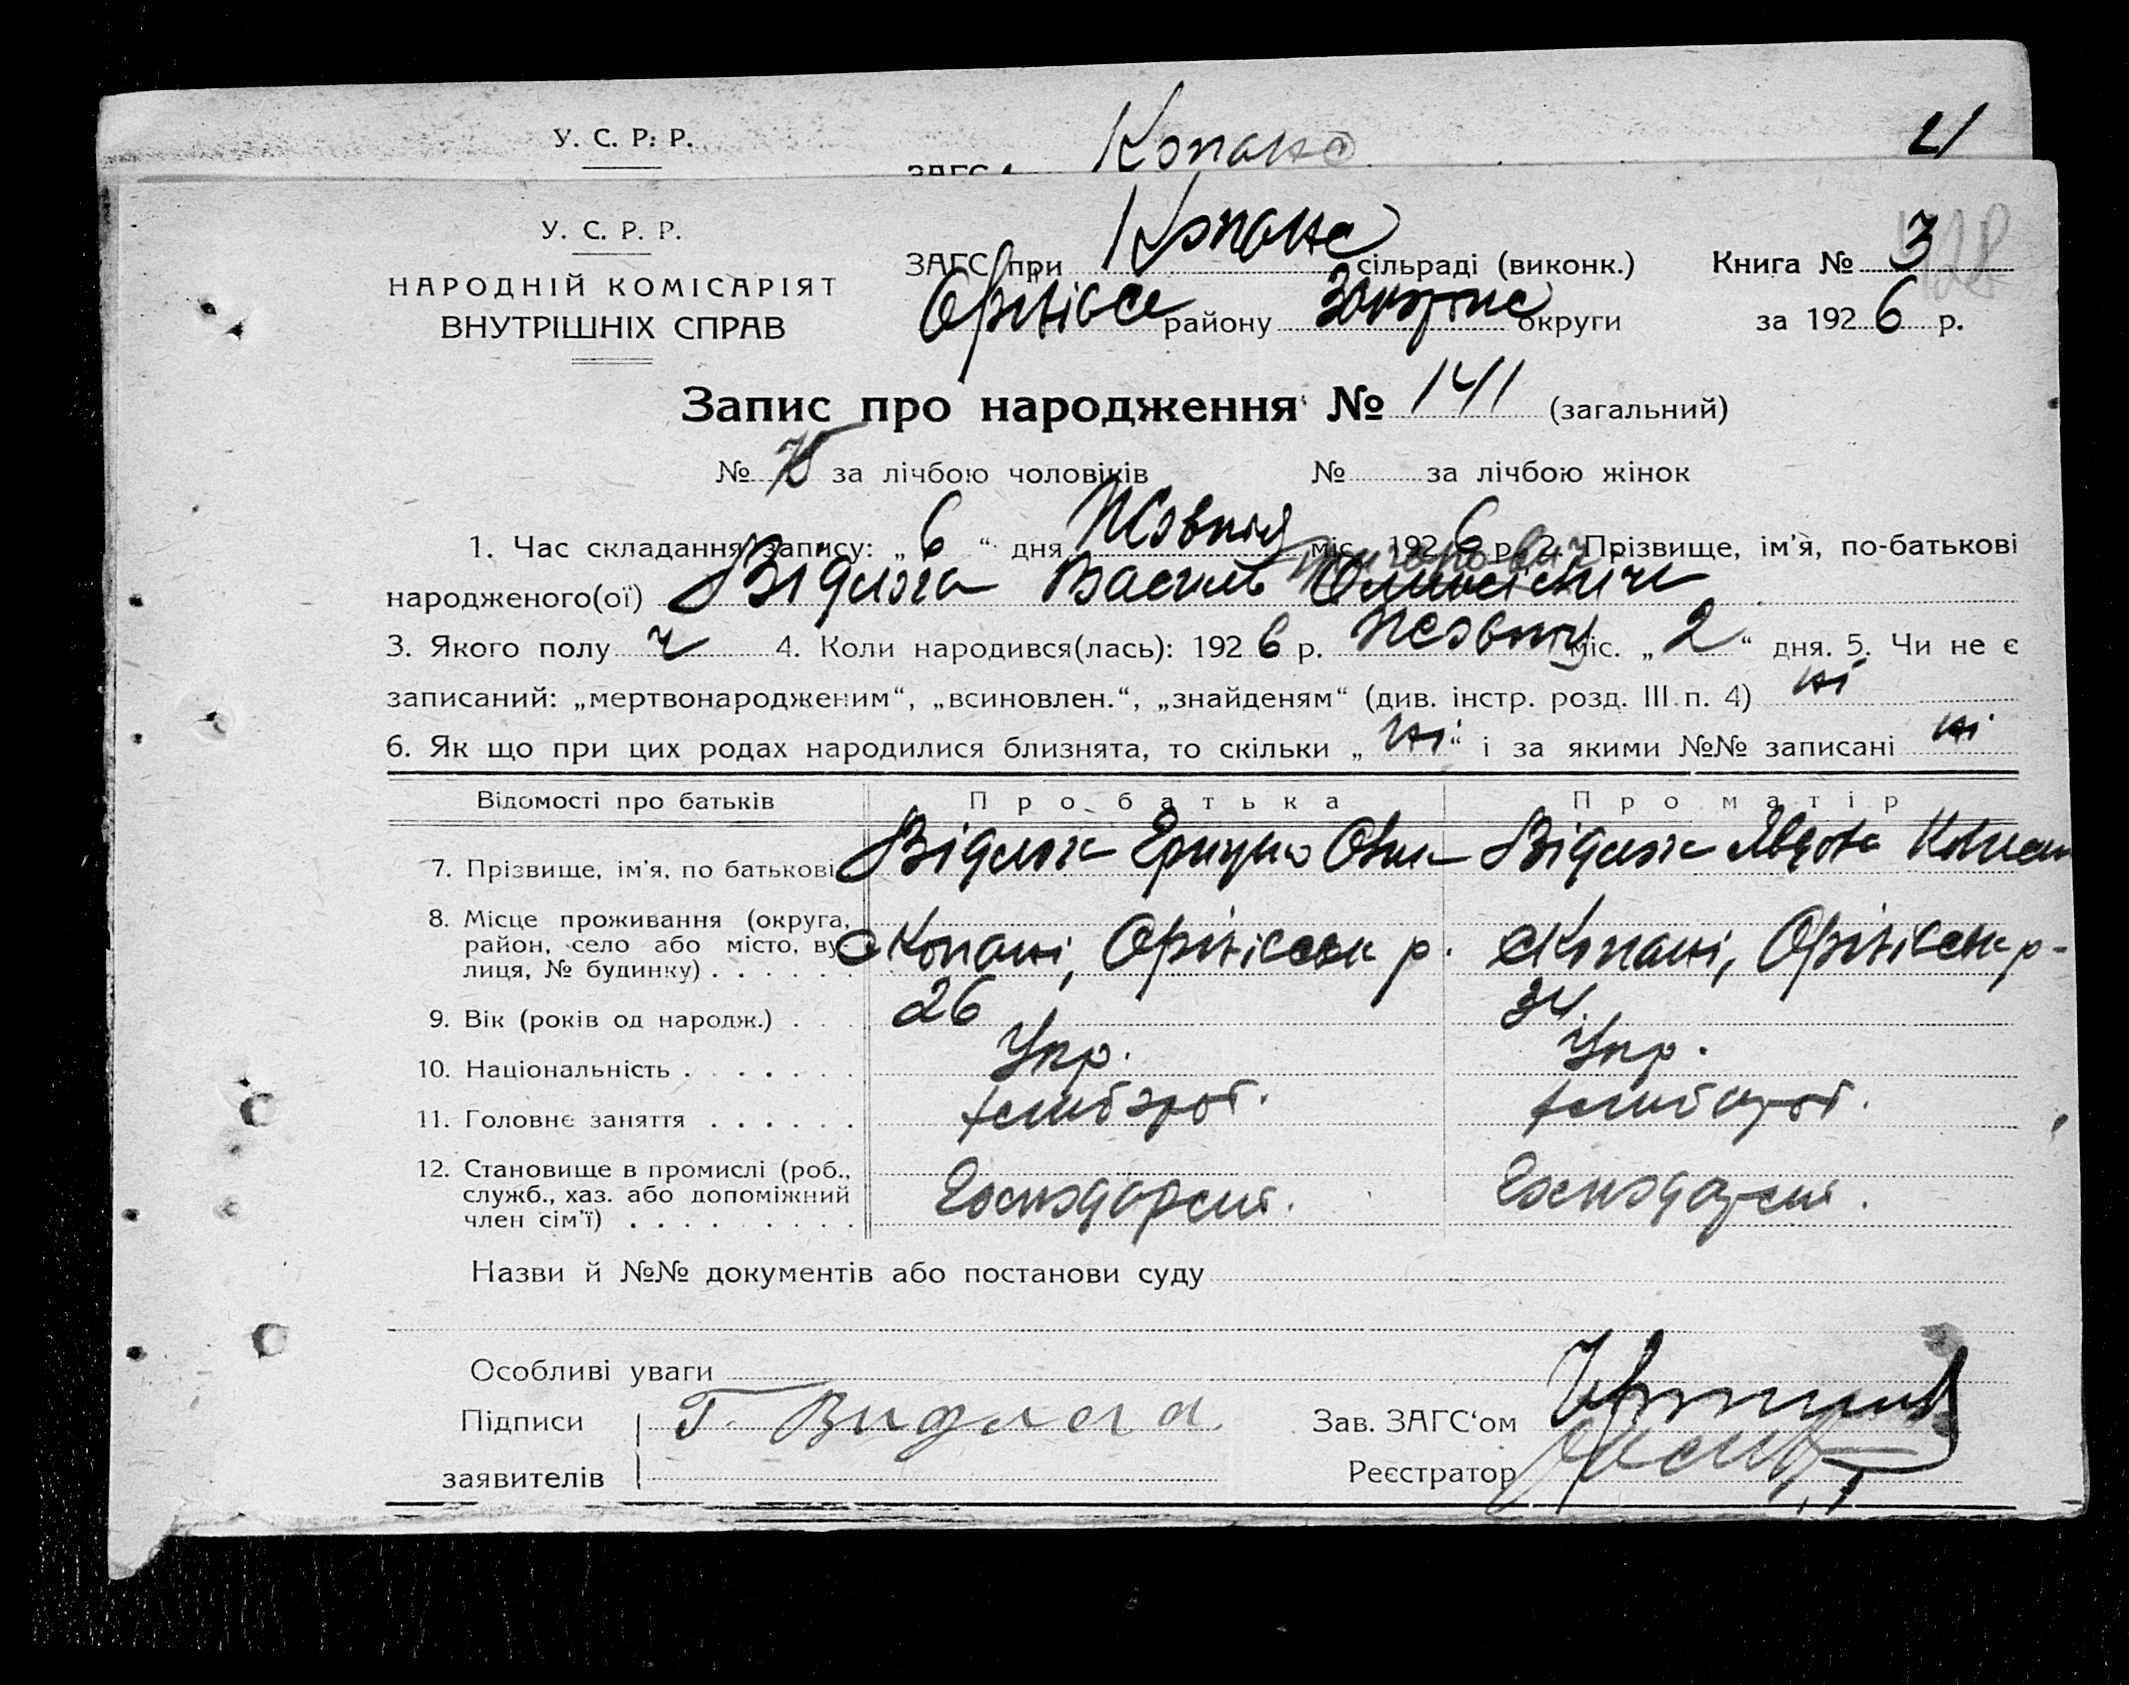 У. С. Р. Р.
Копане 21
У. С. Р. Р.
НАРОДНІЙ КОМІСАРІЯТ
ВНУТРІШНІХ СПРАВ
ЗАГС при Копане сільраді (виконк.) Книга № 3
району округи за 1926 р.
Запис про народження № 141 (загальний)
№ за лічбою чоловіків № за лічбою жінок
1. Час складання запису: „6“ дня Жовтня міс. 1926 р. 2. Прізвище, ім'я, по-батькові
народженого(ої) Відлога Василь
3. Якого полу ч 4. Коли народився(лась): 1926 р. Жовтня міс. „2“ дня. 5. Чи не є
записаний: „мертвонародженим“, „всиновлен.“, „знайденям“ (див. інстр. розд. III п. 4) ні
6. Як що при цих родах народилися близнята, то скільки „ні“ і за якими №№ записані ні
Відомості про батьків Про батька Про матір
7. Прізвище, ім'я, по батькові Відлога Відлога Явдоха
8. Місце проживання (округа, район, село або місто, вулиця, № будинку) . . . . . с Копані, Оріхівськ р. с Копані, Оріхівськ р.
9. Вік (років од народж.) . . . 26 34
10. Національність . . . . . . . Укр. Укр.
11. Головнє заняття . . . . . . хлібороб. хлібороб.
12. Становище в промислі (роб., служб., хаз. або допоміжний член сім'ї) . . . . . . . . .
Назви й №№ документів або постанови суду
Особливі уваги
Підписи заявителів Г. Видлога
Зав. ЗАГС‘ом
Реєстратор